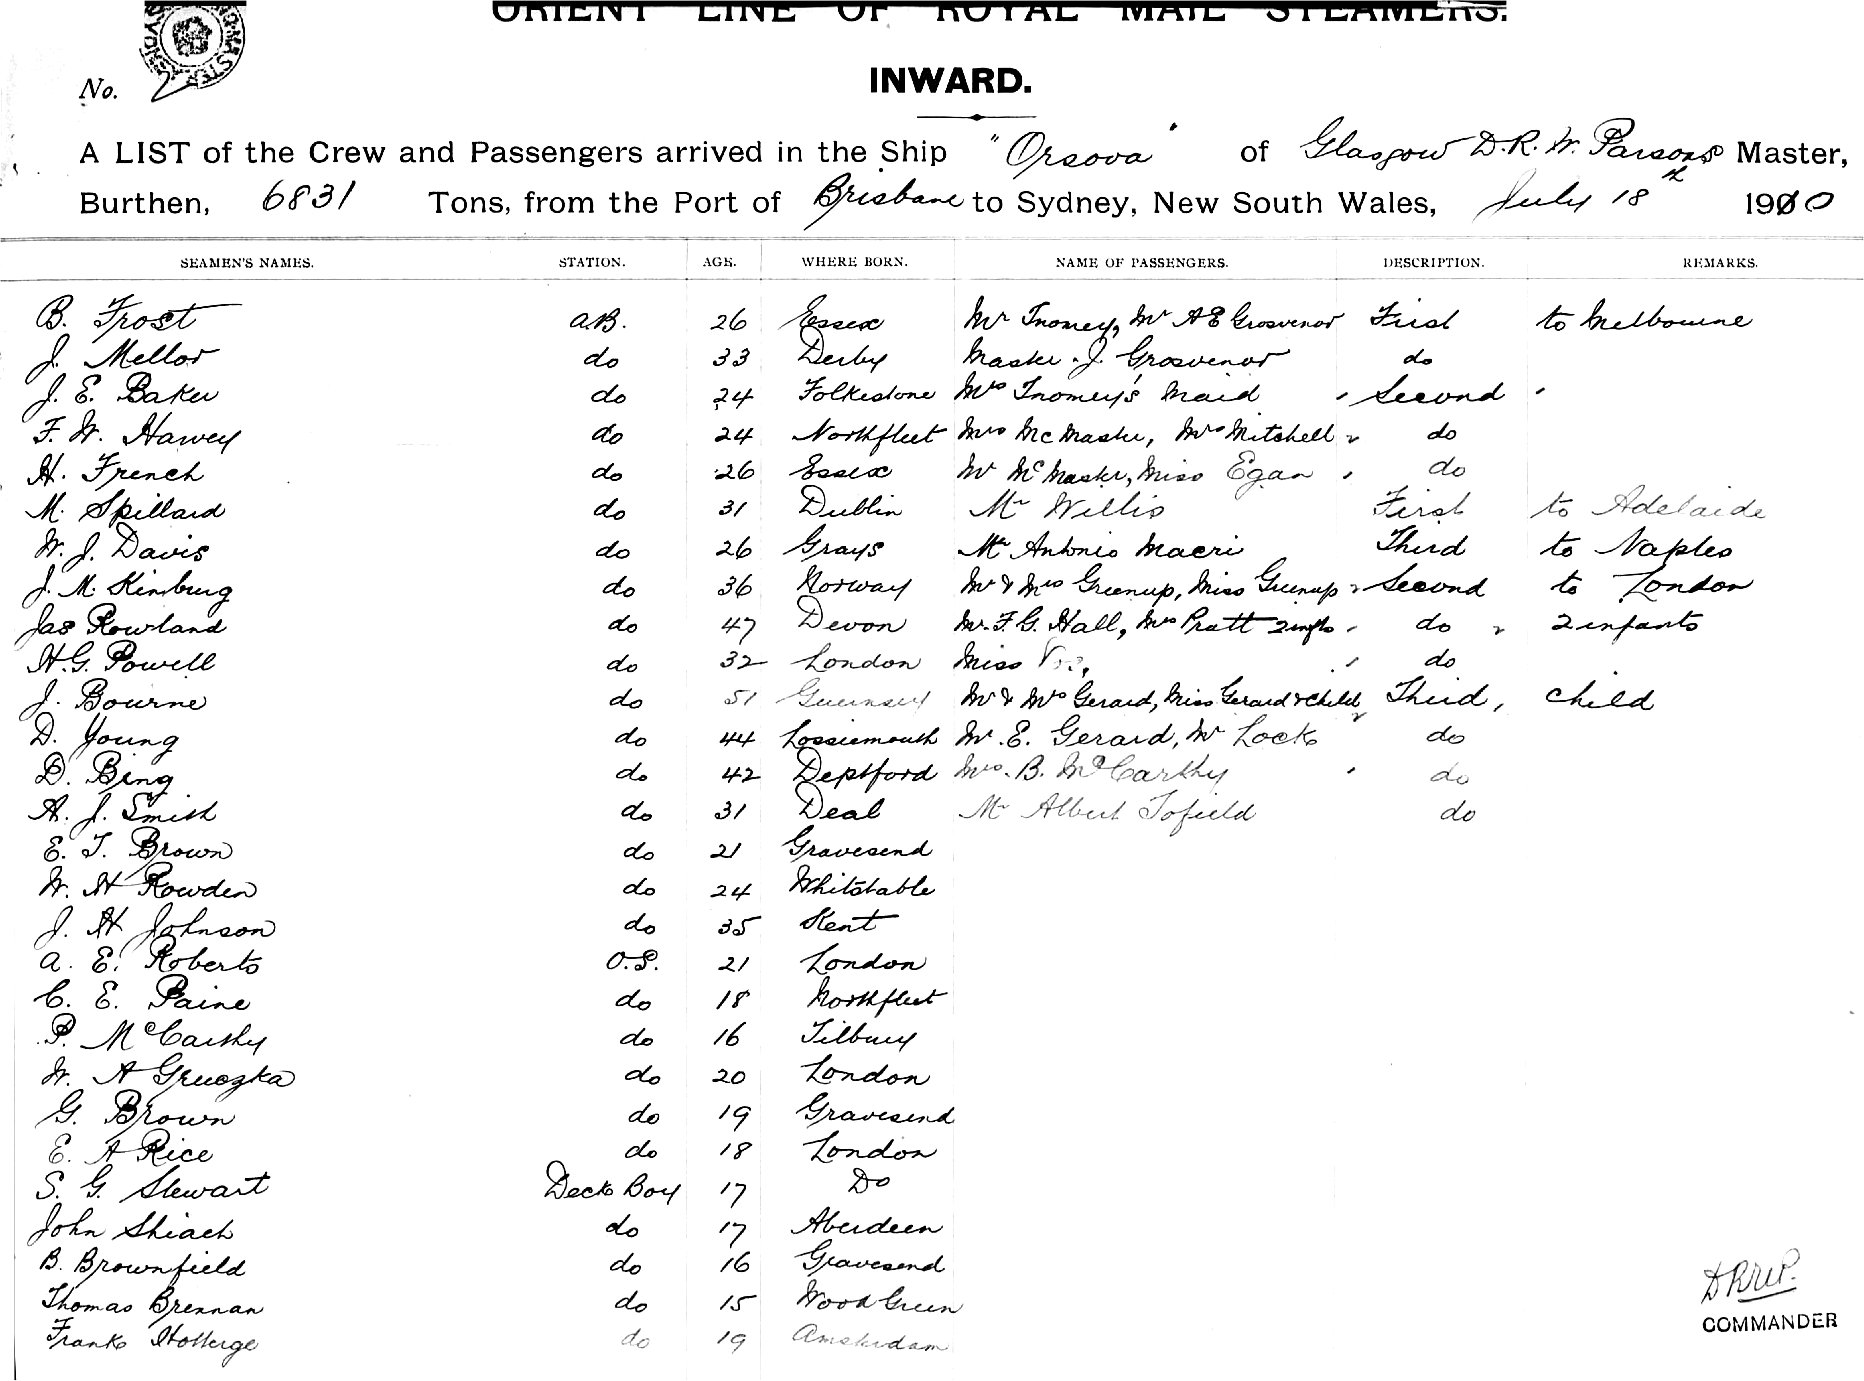 ORIENT LINE OF ROYAL MAIL STEAMERS.
No. 2
INWARD.
A LIST of the Crew and Passengers arrived in the Ship "Orsova" of Glasgow D. R. W. Parsons Master,
Burthen, 6831 Tons, from the Port of Brisbane to Sydney, New South Wales, July 18th 1910
SEAMEN'S NAMES. STATION. AGE. WHERE BORN. NAME OF PASSENGERS. DESCRIPTION. REMARKS.
B. Frost A.B. 26 Essex Mr Twomey, Mr A E Grosvenor First to Melbourne
J. Mellor do 33 Derby Master J. Grosvenor do
J. E. Baker do 24 Folkestone Mrs Twomey's Maid Second "
F. W. Harvey do 24 Northfleet Mrs McMaster, Mrs Mitchell do
H. French do 26 Essex Mr McMaster, Miss Egan do
M. Spillard do 31 Dublin Mr Willis First to Adelaide
W. J. Davis do 26 Grays Mr Antonio Macri Third to Naples
J. M. do 36 Norway Mr & Mrs Greenup, Miss Greenup Second to London
Jas Rowland do 47 Devon Mr. F. G. Hall, Mrs Pratt 2 infts do 2 infants
H. G. Powell do 32 London Miss do
J. Bourne do 51 Guernsey Mr & Mrs Gerard, Miss Gerard & Child Third, child
D. Young do 44 Lossiemouth Mr. E. Gerard, Mr Lock do
D. Bing do 42 Deptford Mrs. B. McCarthy do
A. J. Smith do 31 Deal Mr Albert Tofield do
E. T. Brown do 21 Gravesend
W. H Rowden do 24 Whitstable
J. H Johnson do 35 Kent
A. E. Roberts O.S. 21 London
C. E. Paine do 18 Northfleet
P. McCarthy do 16 Tilbury
W. A Gruczka do 20 London
G. Brown do 19 Gravesend
E. A Rice do 18 London
S. G. Stewart Deck Boy 17 Do
John Shiach do 17 Aberdeen
B. Brownfield do 16 Gravesend
Thomas Brennan do 15 Wood Green
Frank do 19 Amsterdam
DRWP.
COMMANDER